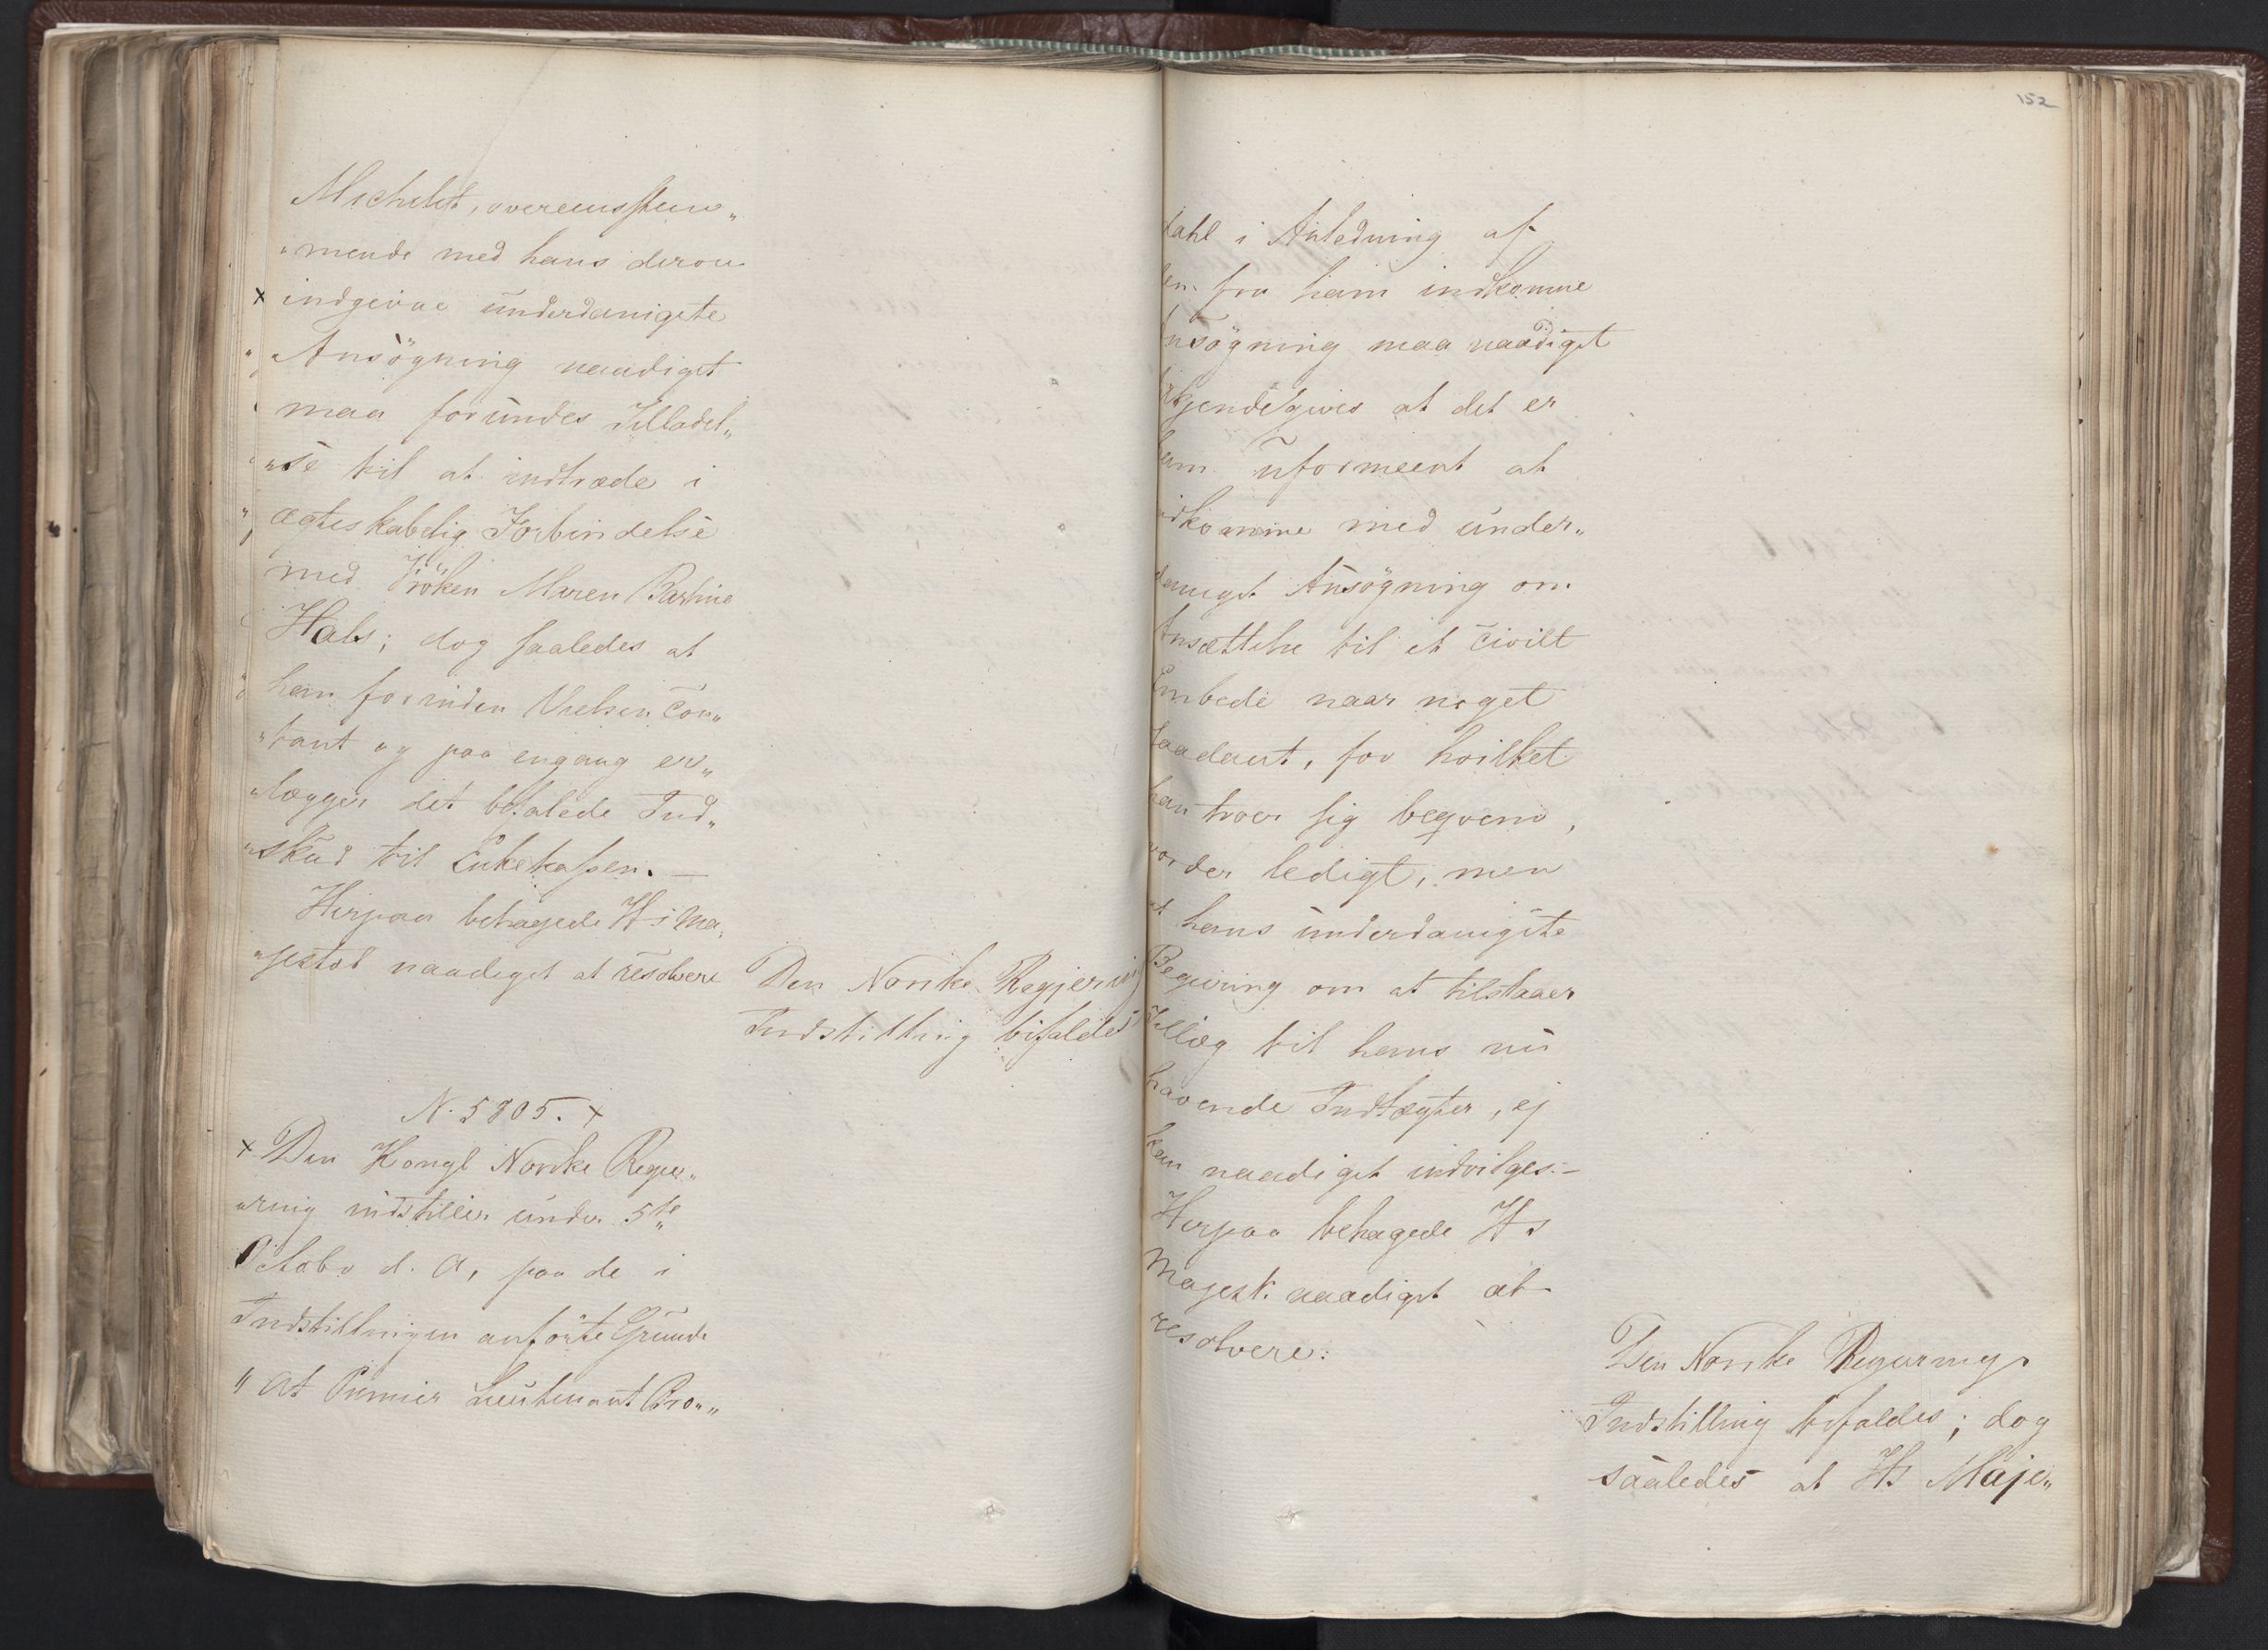 Michelet, overeensstem„
„mende med hans derom
indgivne underdanigste
Ansögning naadigst
maa forundes Tilladel„
„se til at indtræde i
ægteskabelig Forbindelse
med Fröken Maren Bartine
Hals; dog saaledes at
han forinden Vielsen con„
„tant og paa engang er„
„lægger det befalede Ind„
„skud til Enkekassen. —
Herpaa behagede Hs Ma„
„jestæt naadigst at resolvere
Den Norske Regjerings
Indstilling bifaldes
N. 5805. +
Den Kongl Norske Regje„
„ring indstiller under 5te
Octobr d. A, paa de i
Indstillingen anförte Grunde
" At Premier Lieutenant Bro„„
152
dahl i Anledning af
den fra ham indkomne
Ansögning maa naadigst
tilkjendegives at det er
ham uformeent at
indkomme med under„
danigst Ansögning om
Ansættelse til et civilt
Embede naar noget
saadant, for hvilket
han troer sig beqvem,
vorder ledigt, men
at hans underdanigste
Begjering om at tilstaaes
Tillæg til hans nu
havende Indtægter, ej
kan naadigst indvilges. —
Herpaa behagede Hs
Majest: naadigst at
resolvere:
Den Norske Regjerings
Indstilling bifaldes; dog
saaledes at Hs Maje„